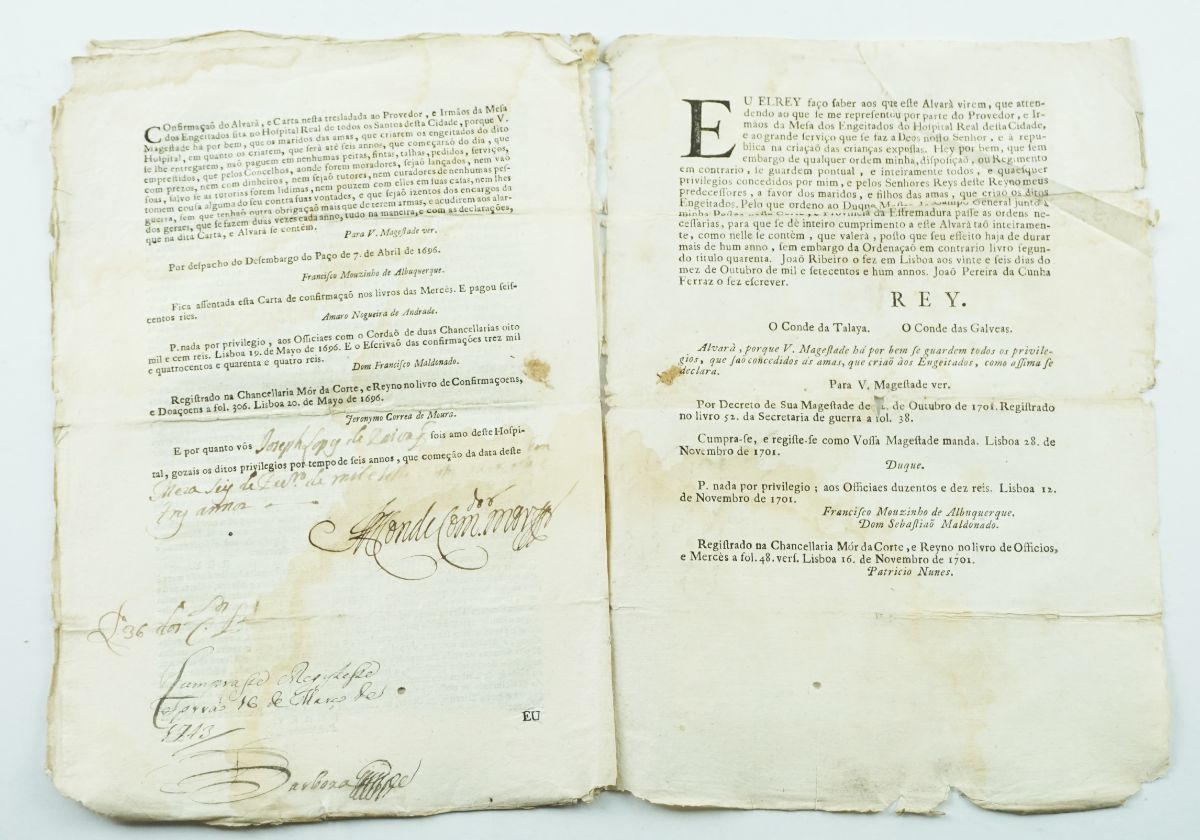 COnfirmaçaõ do Alvarà, e Carta nesta tresladada ao Provedor, e Irmãos da Mesa
dos Engeitados sita no Hospital Real de todos os Santos desta Cidade, porque V.
Magestade há por bem, que os maridos das amas, que criarem os engeitados do dito
Hospital, em quanto os criarem, que serà até seis annos, que começarsó do dia, que
se lhe entregarem, naõ paguem em nenhumas peitas, fintas, talhas, pedidos, serviços,
emprestidos, que pelos Concelhos, aonde forem moradores, sejaõ lançados, nem vaõ
com prezos, nem com dinheiros, nem sejaõ tutores, nem curadores de nenhumas pes-
soas, salvo se as tutorias forem lidimas, nem pouzem com elles em suas casas, nem lhes
tomem cousa alguma do seu contra suas vontades, e que sejaõ izentos dos encargos da
guerra, sem que tenhaõ outra obrigaçaõ mais que de terem armas, e acudirem aos alar-
dos geraes, que se fazem duas vezes cada anno, tudo na maneira, e com as declarações,
que na dita Carta, e Alvarà se contèm.
Para V. Magestade ver.
Por despacho do Desembargo do Paço de 7. de Abril de 1696.
Francisco Mouzinho de Albuquerque.
Fica assentada esta Carta de confirmaçaõ nos livros das Mercès. E pagou seis-
centos ries.
Amaro Nogueira de Andrade.
P. nada por privilegio, aos Officiaes com o Cordaõ de duas Chancellarias oito
mil e cem reis. Lisboa 19. de Mayo de 1696. E o Escrivaõ das confirmações trez mil
e quatrocentos e quarenta e quatro reis.
Dom Francisco Maldonado.
Registrado na Chancellaria Mór da Corte, e Reyno no livro de Confirmaçoens,
e Doaçoens a fol. 306. Lisboa 20. de Mayo de 1696.
Jeronymo Correa de Moura.
E por quanto vós Joseph Lopz de Paiva fois amo deste Hospi-
tal, gozais os ditos privilegios por tempo de seis annos, que começão da data deste
Meza seis de de mil
tres annos
Conde Com.dor mayor
Cumprase Registese
16 de Março de
1713
Barboza
EU
EU ELREY faço saber aos que este Alvarà virem, que atten-
dendo ao que se me representou por parte do Provedor, e Ir-
mãos da Mesa dos Engeitados do Hospital Real desta Cidade,
e ao grande serviço que se faz a Deos nosso Senhor, e à repu-
blica na criaçaõ das crianças expostas. Hey por bem, que sem
embargo de qualquer ordem minha, disposiçaõ, ou Regimento
em contrario, se guardem pontual, e inteiramente todos, e quaesquer
privilegios concedidos por mim, e pelos Senhores Reys deste Reyno meus
predecessores, a favor dos maridos, e filhos das amas, que criaõ os ditos
Engeitados. Pelo que ordeno ao Duque Campo General junto à
minha Provincia da Estremadura passe as ordens ne-
cessarias, para que se dè inteiro cumprimento a este Alvarà taõ inteiramen-
te, como nelle se contèm, que valerà, posto que seu effeito haja de durar
mais de hum anno, sem embargo da Ordenaçaõ em contrario livro segun-
do titulo quarenta. Joaõ Ribeiro o fez em Lisboa aos vinte e seis dias do
mez de Outubro de mil e setecentos e hum annos. Joaõ Pereira da Cunha
Ferraz o fez escrever.
REY.
O Conde da Talaya. O Conde das Galveas.
Alvarà, porque V. Magestade há por bem se guardem todos os privile-
gios, que saõ concedidos às amas, que criaõ aos Engeitados, como assima se
declara.
Para V. Magestade ver.
Por Decreto de Sua Magestade de de Outubro de 1701. Registrado
no livro 52. da Secretaria de guerra a fol. 38.
Cumpra-se, e registe-se como Vossa Magestade manda. Lisboa 28. de
Novembro de 1701.
Duque.
P. nada por privilegio; aos Officiaes duzentos e dez reis. Lisboa 12.
de Novembro de 1701.
Francisco Mouzinho de Albuquerque.
Dom Sebastiaõ Maldonado.
Registrado na Chancellaria Mór da Corte, e Reyno no livro de Officios,
e Mercès a fol. 48. vers. Lisboa 16. de Novembro de 1701.
Patricio Nunes.